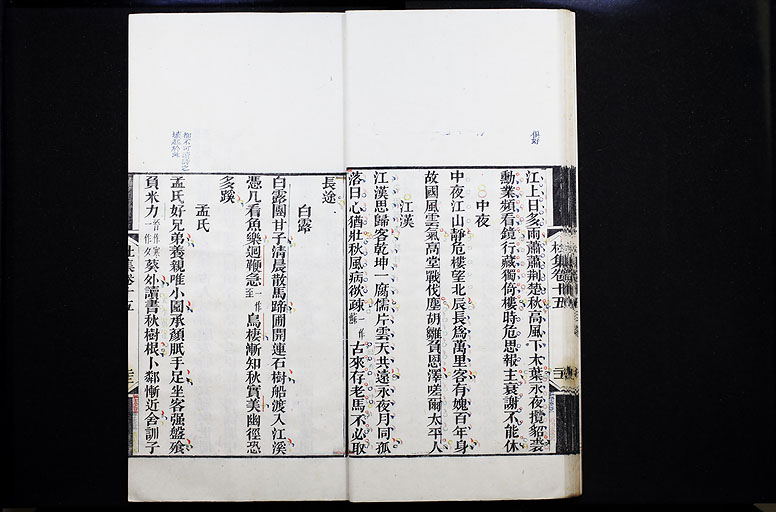 江上日多雨蕭蕭荆楚秋高風下木葉永夜攬貂裘
勳業頻看鏡行藏獨倚樓時危思報主衰謝不能休
中夜
中夜江山靜危樓望北辰長爲萬里客有媿百年身
故國風雲氣高堂戰伐塵胡雛負恩澤嗟爾太平人
江漢
江漢思歸客乾坤一腐儒片雲天共遠永夜月同孤
落日心猶壯秋風病欲疎一作蘇古來存老馬不必取
長途
白露
白露團甘子清晨散馬蹄圃開連石樹船渡入江溪
憑几看魚樂迴鞭急一作至鳥棲漸知秋實美幽徑恐
多蹊
孟氏
孟氏好兄弟養親唯小園承顏胝手足坐客强盤飧
負米力葵外讀書秋樹根卜鄰慚近舍訓子
杜集卷十五